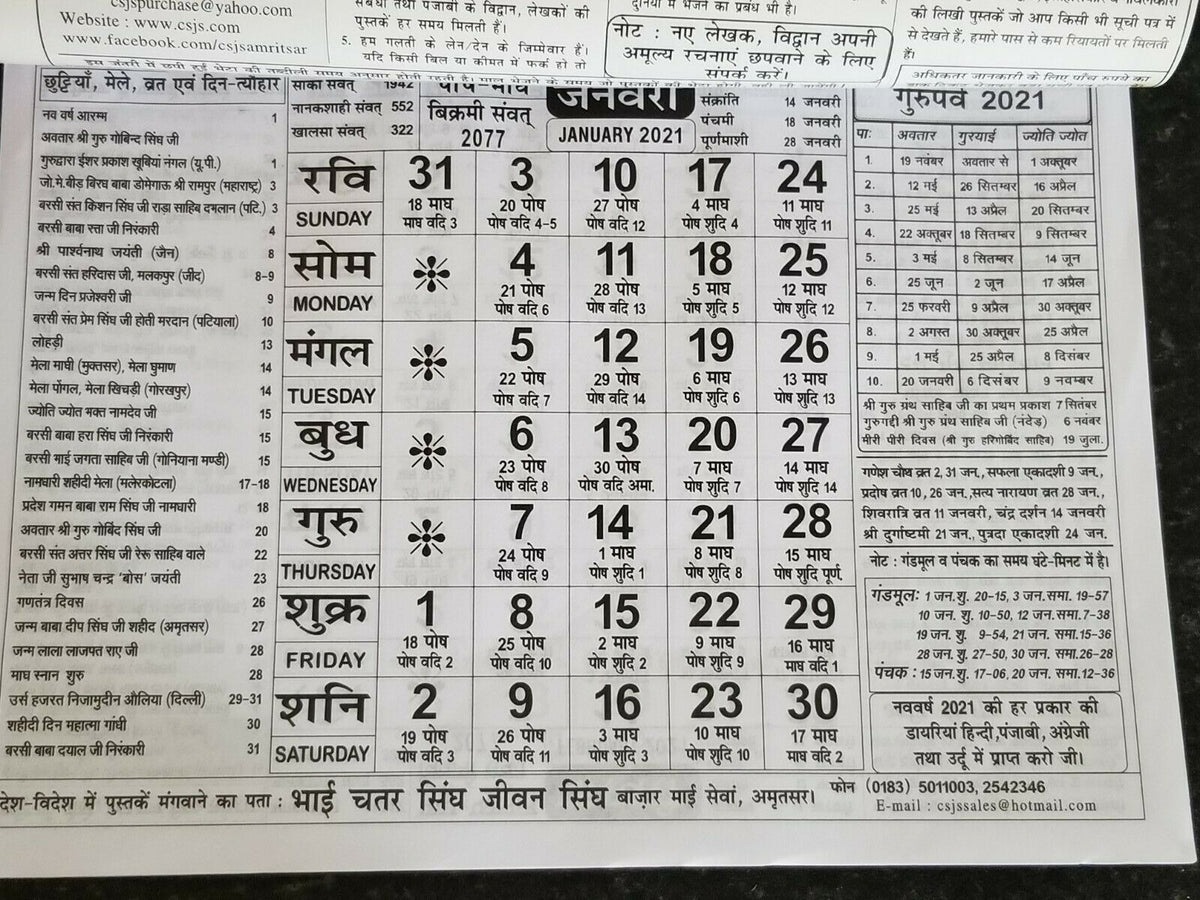 csjspurchase@yahoo.com
Website : www.csjs.com
www.facebook.com/csjsamritsar
तथा पंजाबी के विद्वान, लेखकों की
पुस्तकें हर समय मिलती हैं।
5. हम गलती के लेन/देन के जिम्मेवार हैं।
यदि किसी बिल या कीमत में फर्क हो तो
दुनिया में भेजने का प्रबंध भी है।
नोट : नए लेखक, विद्वान अपनी
अमूल्य रचनाएं छपवाने के लिए
संपर्क करें।
की लिखी पुस्तकें जो आप किसी भी सूची पत्र में
से देखते हैं, हमारे पास से कम रियायतों पर मिलती
हैं।
अधिकतर जानकारी के लिए पाँच रुपये का
छुट्टियाँ, मेले, व्रत एवं दिन-त्यौहार
नव वर्ष आरम्भ 1
अवतार श्री गुरु गोबिन्द सिंघ जी
गुरुद्वारा ईशर प्रकाश खूबियां नंगल (यू.पी.) 1
जो.मे.बीड़ बिरध बाबा डोमेगाऊ श्री रामपुर (महाराष्ट्र) 3
बरसी संत किशन सिंघ जी राड़ा साहिब दमलान (पटि.) 3
बरसी बाबा रत्ता जी निरंकारी 4
श्री पार्श्वनाथ जयंती (जैन) 8
बरसी संत हरिदास जी, मलकपुर (जींद) 8-9
जन्म दिन प्रजेश्वरी जी 9
बरसी संत प्रेम सिंघ जी होती मरदान (पटियाला) 10
लोहड़ी 13
मेला माघी (मुक्तसर), मेला घुमाण 14
मेला पोंगल, मेला खिचड़ी (गोरखपुर) 14
ज्योति ज्योत भक्त नामदेव जी 15
बरसी बाबा हरा सिंघ जी निरंकारी 15
बरसी माई जगता साहिब जी (गोनियाना मण्डी) 15
नामधारी शहीदी मेला (मलेरकोटला) 17-18
प्रदेश गमन बाबा राम सिंघ जी नामधारी 18
अवतार श्री गुरु गोबिंद सिंघ जी 20
बरसी संत अत्तर सिंघ जी रेरू साहिब वाले 22
नेता जी सुभाष चन्द्र 'बोस' जयंती 23
गणतंत्र दिवस 26
जन्म बाबा दीप सिंघ जी शहीद (अमृतसर) 27
जन्म लाला लाजपत राए जी 28
माघ स्नान शुरु 28
उर्स हजरत निजामुदीन औलिया (दिल्ली) 29-31
शहीदी दिन महात्मा गांधी 30
बरसी बाबा दयाल जी निरंकारी 31
साका संवत् 1942
नानकशाही संवत् 552
खालसा संवत् 322
पोष-माघ
बिक्रमी संवत्
2077
जनवरी
JANUARY 2021
संक्रांति 14 जनवरी
पंचमी 18 जनवरी
पूर्णमाशी 28 जनवरी
रवि 31 3 10 17 24
18 माघ 20 पोष 27 पोष 4 माघ 11 माघ
SUNDAY माघ वदि 3 पोष वदि 4-5 पोष वदि 12 पोष शुदि 4 पोष शुदि 11
सोम 4 11 18 25
21 पोष 28 पोष 5 माघ 12 माघ
MONDAY पोष वदि 6 पोष वदि 13 पोष शुदि 5 पोष शुदि 12
मंगल 5 12 19 26
22 पोष 29 पोष 6 माघ 13 माघ
TUESDAY पोष वदि 7 पोष वदि 14 पोष शुदि 6 पोष शुदि 13
बुध 6 13 20 27
23 पोष 30 पोष 7 माघ 14 माघ
WEDNESDAY पोष वदि 8 पोष वदि अमा. पोष शुदि 7 पोष शुदि 14
गुरु 7 14 21 28
24 पोष 1 माघ 8 माघ 15 माघ
THURSDAY पोष वदि 9 पोष शुदि 1 पोष शुदि 8 पोष शुदि पूर्ण.
शुक्र 1 8 15 22 29
18 पोष 25 पोष 2 माघ 9 माघ 16 माघ
FRIDAY पोष वदि 2 पोष वदि 10 पोष शुदि 2 पोष शुदि 9 माघ वदि 1
शनि 2 9 16 23 30
19 पोष 26 पोष 3 माघ 10 माघ 17 माघ
SATURDAY पोष वदि 3 पोष वदि 11 पोष शुदि 3 पोष शुदि 10 माघ वदि 2
गुरुपर्व 2021
पाः अवतार गुरयाई ज्योति ज्योत
1. 19 नवंबर अवतार से 1 अक्तूबर
2. 12 मई 26 सितम्बर 16 अप्रैल
3. 25 मई 13 अप्रैल 20 सितम्बर
4. 22 अक्तूबर 18 सितम्बर 9 सितम्बर
5. 3 मई 8 सितम्बर 14 जून
6. 25 जून 2 जून 17 अप्रैल
7. 25 फरवरी 9 अप्रैल 30 अक्तूबर
8. 2 अगस्त 30 अक्तूबर 25 अप्रैल
9. 1 मई 25 अप्रैल 8 दिसंबर
10. 20 जनवरी 6 दिसंबर 9 नवम्बर
श्री गुरु ग्रंथ साहिब जी का प्रथम प्रकाश 7 सितंबर
गुरुगद्दी श्री गुरु ग्रंथ साहिब जी (नंदेड़) 6 नवंबर
मीरी पीरी दिवस (श्री गुरु हरिगोबिंद साहिब) 19 जुला.
गणेश चौष व्रत 2, 31 जन., सफला एकादशी 9 जन.,
प्रदोष व्रत 10, 26 जन., सत्य नारायण व्रत 28 जन.,
शिवरात्रि व्रत 11 जनवरी, चंद्र दर्शन 14 जनवरी
श्री दुर्गाष्टमी 21 जन., पुत्रदा एकादशी 24 जन.
नोट : गंडमूल व पंचक का समय घंटे-मिनट में है।
गंडमूलः 1 जन.शु. 20-15, 3 जन.समा. 19-57
10 जन.शु. 10-50, 12 जन.समा. 7-38
19 जन. शु. 9-54, 21 जन. समा.15-36
28 जन.शु. 27-50, 30 जन. समा.26-28
पंचक : 15 जन.शु. 17-06, 20 जन. समा.12-36
नववर्ष 2021 की हर प्रकार की
डायरियां हिन्दी,पंजाबी, अंग्रेजी
तथा उर्दू में प्राप्त करो जी।
देश-विदेश में पुस्तकें मंगवाने का पता : भाई चतर सिंघ जीवन सिंघ बाज़ार माई सेवां, अमृतसर। फोन (0183) 5011003, 2542346
E-mail : csjssales@hotmail.com